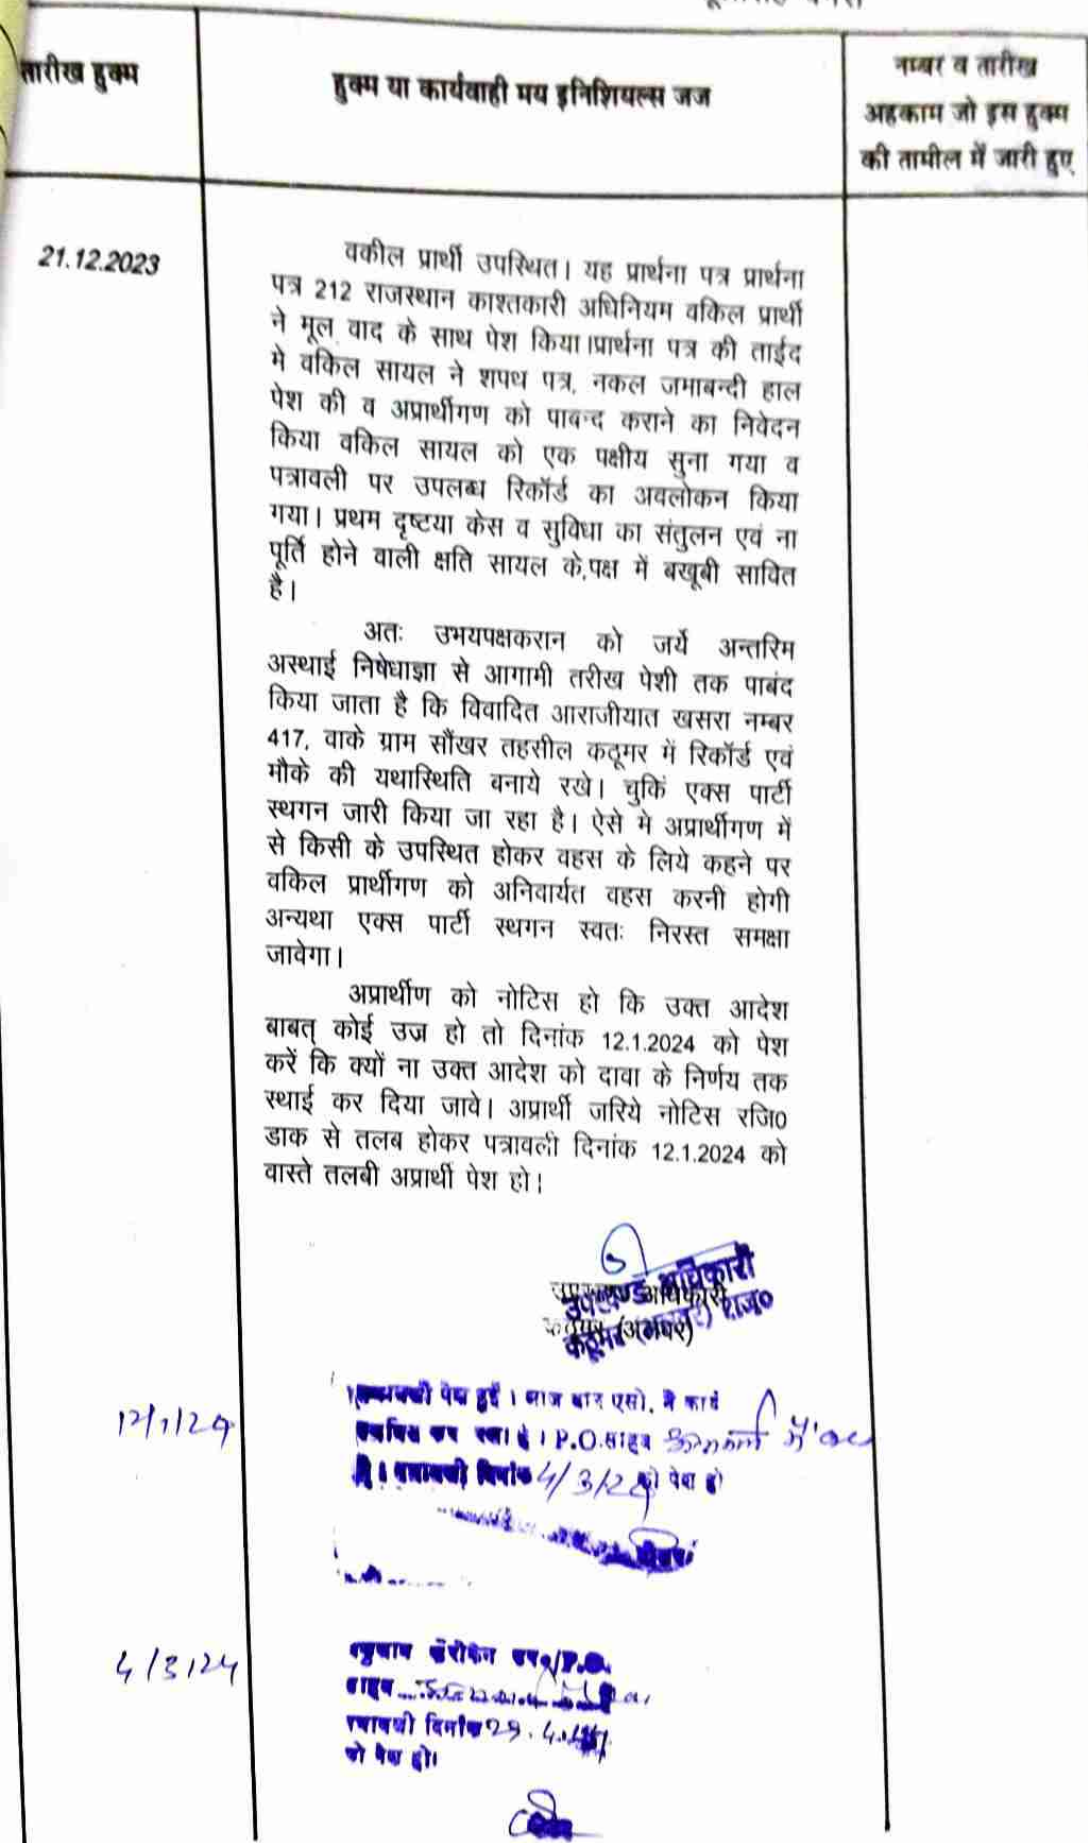 तारीख हुक्म
हुक्म या कार्यवाही मय इनिशियल्स जज
नम्बर व तारीख
अहकाम जो इस हुक्म
की तामील में जारी हुए
21.12.2023
वकील प्रार्थी उपस्थित। यह प्रार्थना पत्र प्रार्थना
पत्र 212 राजस्थान काश्तकारी अधिनियम वकिल प्रार्थी
ने मूल वाद के साथ पेश किया।प्रार्थना पत्र की ताईद
मे वकिल सायल ने शपथ पत्र, नकल जमाबन्दी हाल
पेश की व अप्रार्थीगण को पाबन्द कराने का निवेदन
किया वकिल सायल को एक पक्षीय सुना गया व
पत्रावली पर उपलब्ध रिकॉर्ड का अवलोकन किया
गया। प्रथम दृष्टया केस व सुविधा का संतुलन एवं ना
पूर्ति होने वाली क्षति सायल के,पक्ष में बखूबी सावित
है।
अतः उभयपक्षकरान को जर्ये अन्तरिम
अस्थाई निषेधाज्ञा से आगामी तरीख पेशी तक पाबंद
किया जाता है कि विवादित आराजीयात खसरा नम्बर
417, वाके ग्राम सौंखर तहसील कठूमर में रिकॉर्ड एवं
मौके की यथास्थिति बनाये रखे। चुकिं एक्स पार्टी
स्थगन जारी किया जा रहा है। ऐसे मे अप्रार्थीगण में
से किसी के उपस्थित होकर वहस के लिये कहने पर
वकिल प्रार्थीगण को अनिवार्यत वहस करनी होगी
अन्यथा एक्स पार्टी स्थगन स्वतः निरस्त समक्षा
जावेगा।
अप्रार्थीण को नोटिस हो कि उक्त आदेश
बाबत् कोई उज हो तो दिनांक 12.1.2024 को पेश
करें कि क्यों ना उक्त आदेश को दावा के निर्णय तक
स्थाई कर दिया जावे। अप्रार्थी जरिये नोटिस रजि0
डाक से तलब होकर पत्रावली दिनांक 12.1.2024 को
वास्ते तलबी अप्रार्थी पेश हो।
उपखण्ड अधिकारी
कठूमर (अलवर) राज०
12/1/24
पेश हुई। आज बार एसो. ने कार्य
P.O. साहब
पत्रावली दिनांक 4/3/24 को पेश हो
4/3/24
P.O.
साहब
पत्रावली दिनांक 29.4.24
को पेश हो।